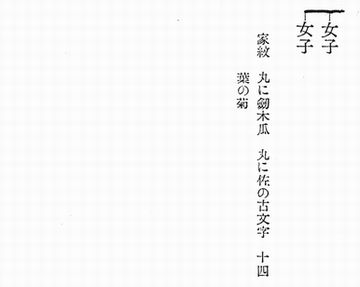 女子
女子
家紋 丸に劔木瓜 丸に佐の古文字 十四
葉の菊